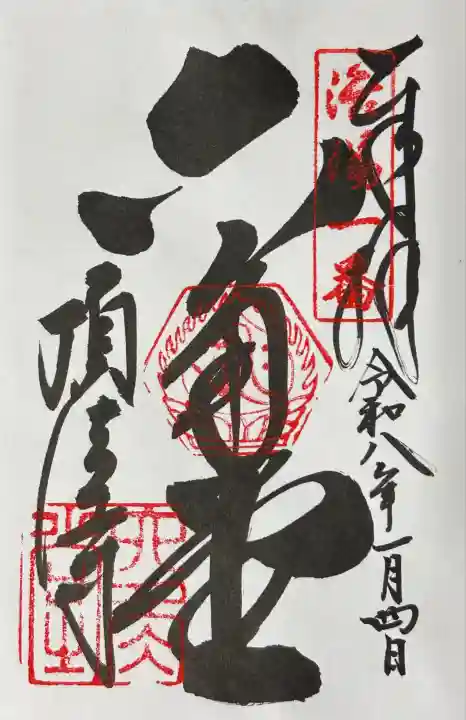 奉拝
洛陽一番
令和八年一月四日
六角堂
頂法寺